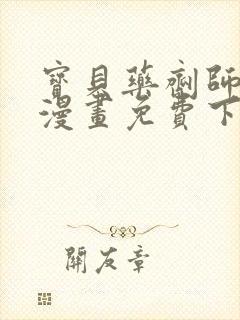 寶貝藥劑師
漫畫免費下
關友章